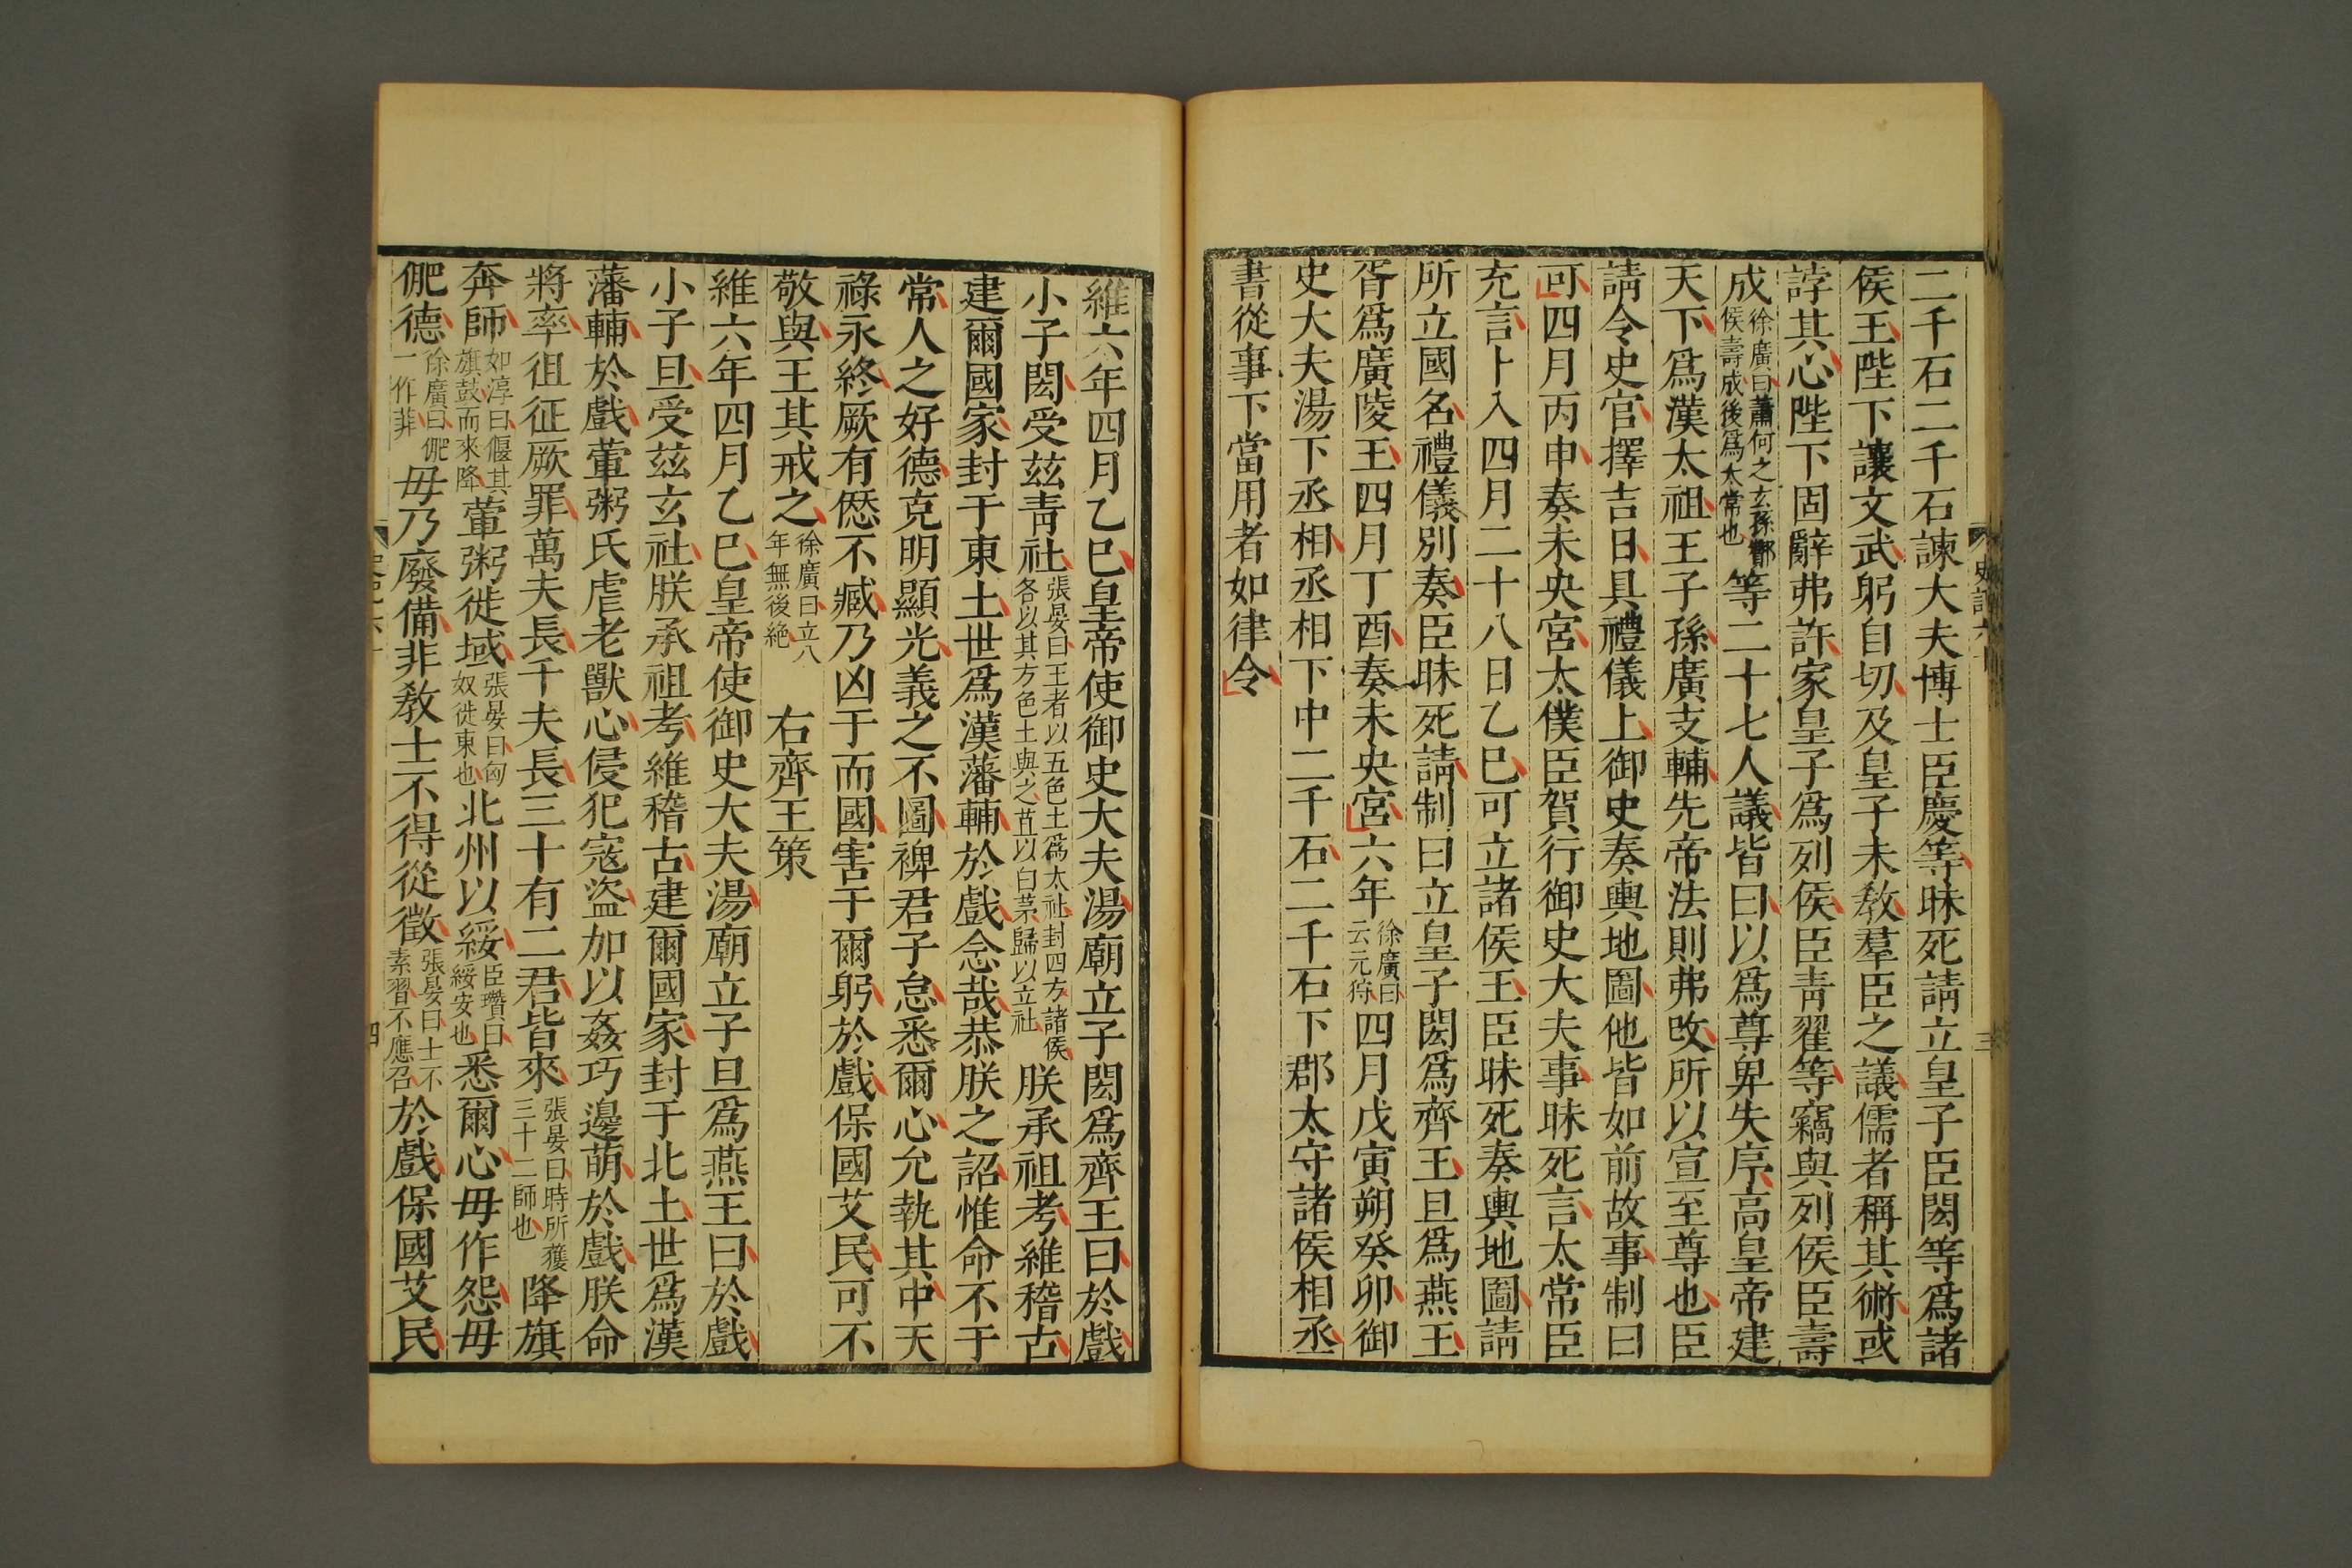 史記六十
三
二千石二千石諫大夫博士臣慶等昧死請立皇子臣閎等爲諸
侯王陛下讓文武躬自切及皇子未敎羣臣之議儒者稱其術或
誖其心陛下固辭弗許家皇子爲列侯臣靑翟等竊與列侯臣壽
成徐廣曰蕭何之玄孫酇侯壽成後爲太常也等二十七人議皆曰以爲尊卑失序高皇帝建
天下爲漢太祖王子孫廣支輔先帝法則弗改所以宣至尊也臣
請令史官擇吉日具禮儀上御史奏輿地圖他皆如前故事制曰
可四月丙申奏未央宮太僕臣賀行御史大夫事昧死言太常臣
充言卜入四月二十八日乙巳可立諸侯王臣昧死奏輿地圖請
所立國名禮儀別奏臣昧死請制曰立皇子閎爲齊王旦爲燕王
胥爲廣陵王四月丁酉奏未央宮六年徐廣曰云元狩四月戊寅朔癸卯御
史大夫湯下丞相丞相下中二千石二千石下郡太守諸侯相丞
書從事下當用者如律令
維六年四月乙巳皇帝使御史大夫湯廟立子閎爲齊王曰於戲
小子閎受茲靑社張晏曰王者以五色土爲太社封四方諸侯各以其方色土與之苴以白茅歸以立社朕承祖考維稽古
建爾國家封于東土世爲漢藩輔於戲念哉恭朕之詔惟命不于
常人之好德克明顯光義之不圖裨君子怠悉爾心允執其中天
祿永終厥有愆不臧乃凶于而國害于爾躬於戲保國艾民可不
敬與王其戒之徐廣曰立八年無後絶 右齊王策
維六年四月乙巳皇帝使御史大夫湯廟立子旦爲燕王曰於戲
小子旦受茲玄社朕承祖考維稽古建爾國家封于北土世爲漢
藩輔於戲葷粥氏虐老獸心侵犯寇盜加以姦巧邊萌於戲朕命
將率徂征厥罪萬夫長千夫長三十有二君皆來張晏曰時所獲三十二師也降旗
奔師如淳曰偃其旗鼓而來降葷粥徙域張晏曰匈奴徙東也北州以綏臣瓚曰綏安也悉爾心毋作怨毋
俷德徐廣曰俷一作菲毋乃廢備非敎士不得從徵張晏曰士不素習不應召於戲保國艾民
四